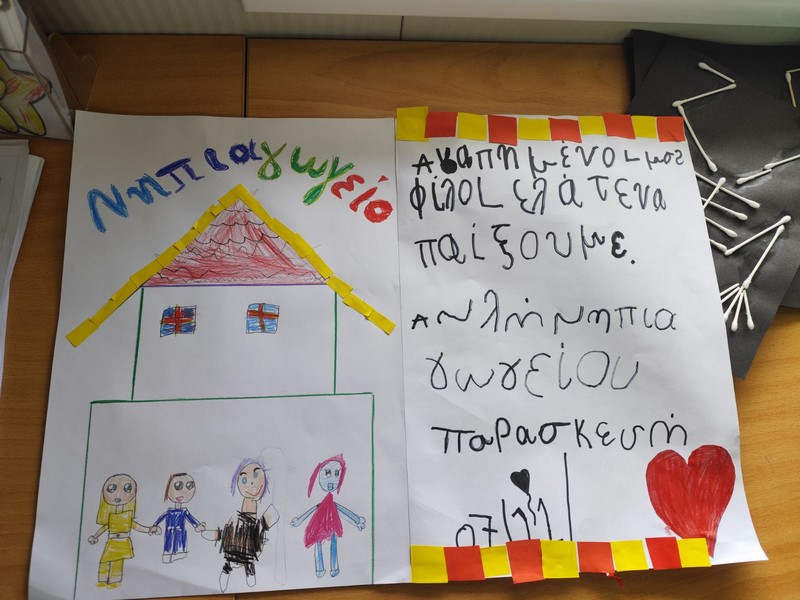 Νηπιαγωγείο
Αγαπημένοι μας
φίλοι ελάτε να
παίξουμε.
Αυλή Νηπια
γωγείου
παρασκευή
07/11